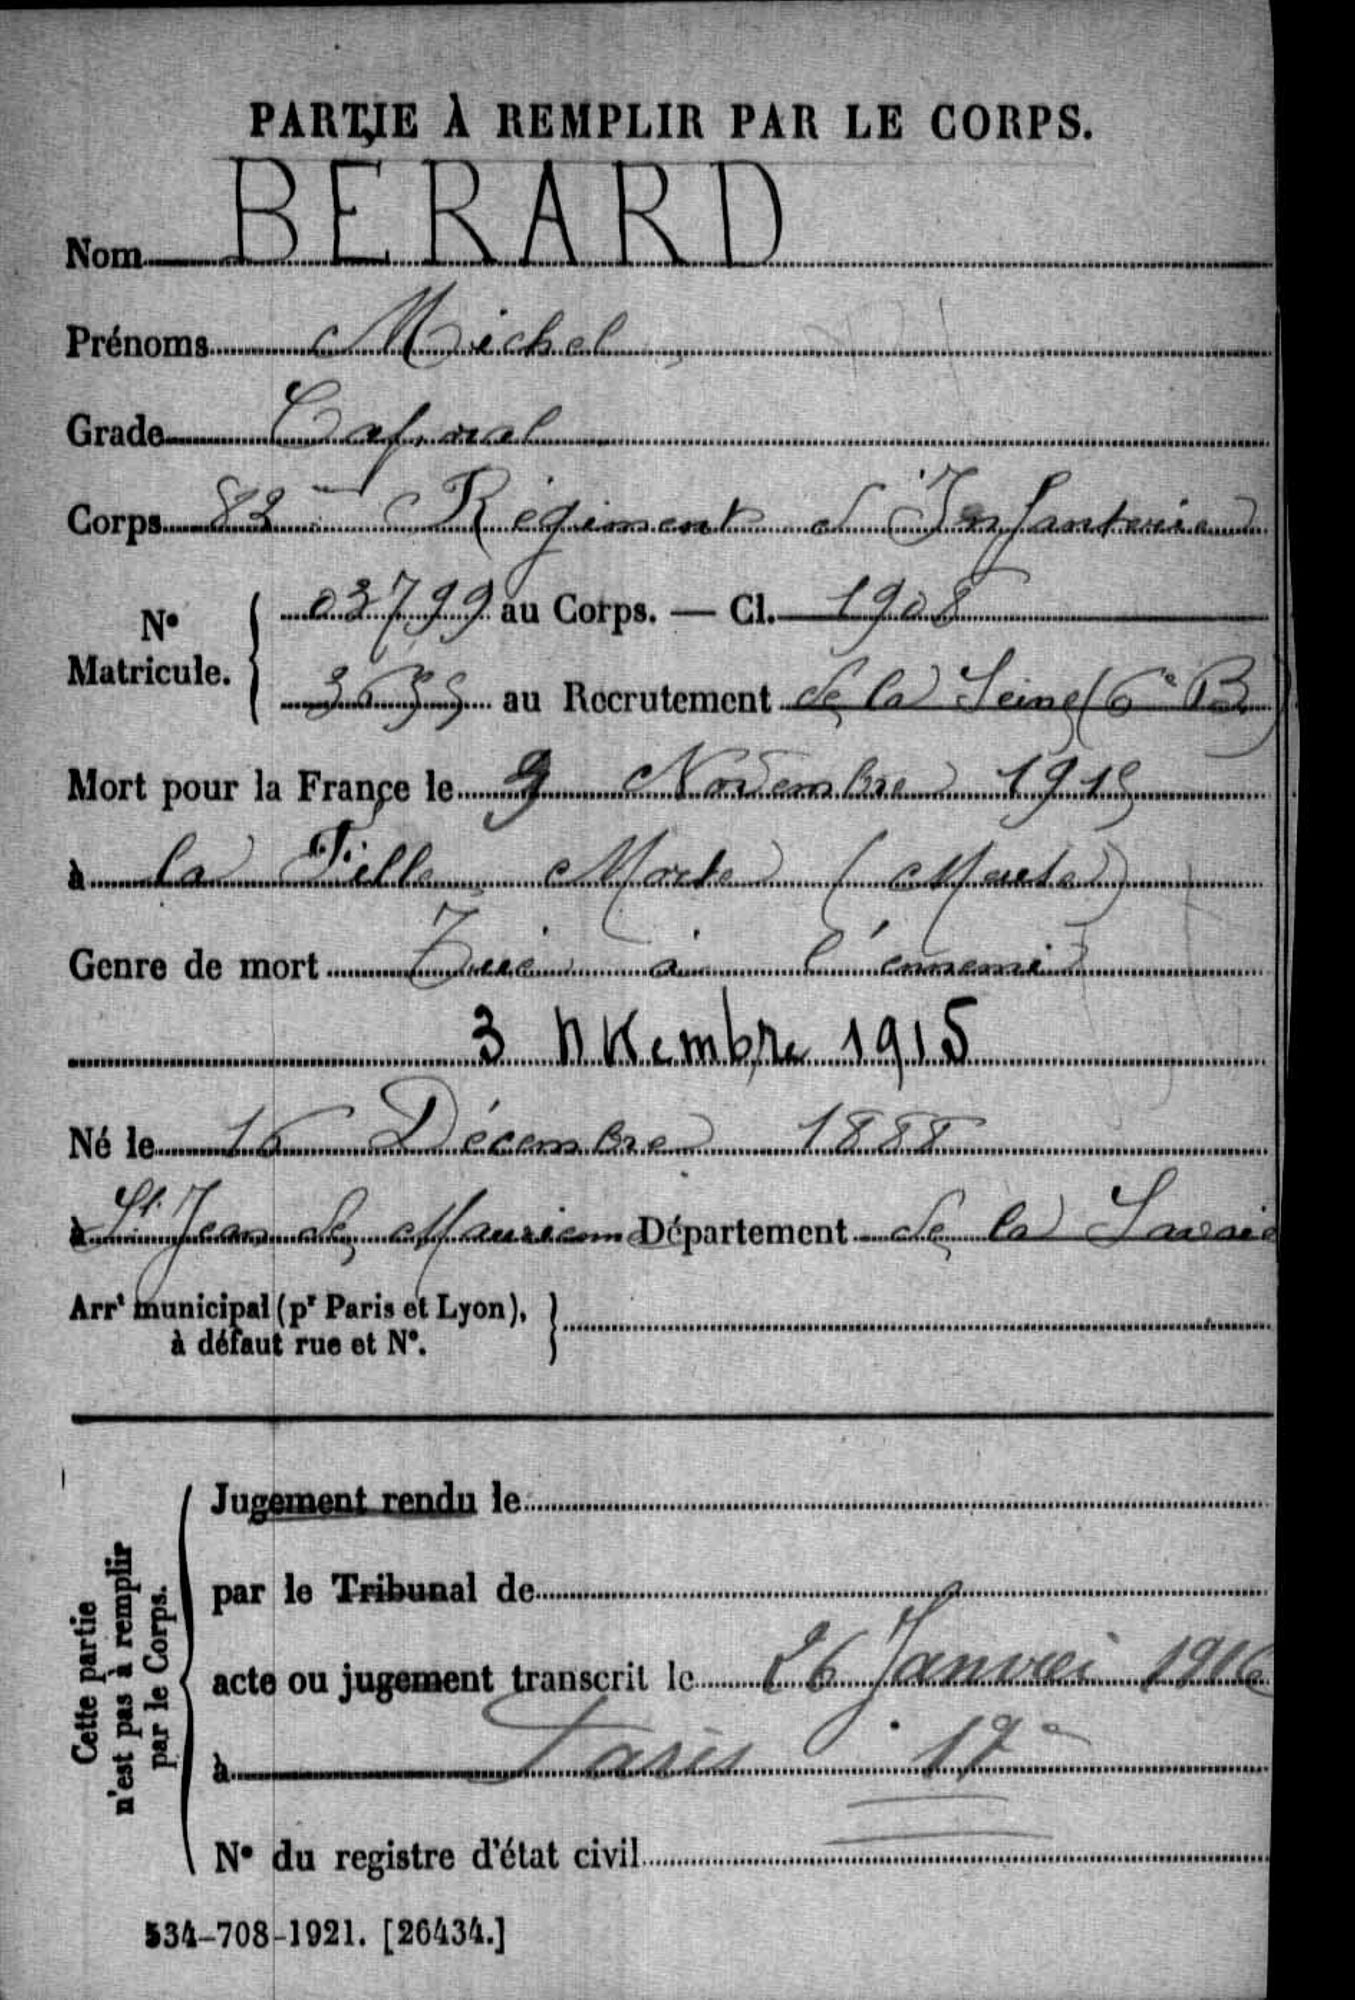 PARTIE À REMPLIR PAR LE CORPS.
Nom BERARD
Prénoms Michel
Grade Caporal
Corps 82e Régiment d'Infanterie
N° Matricule. { 03799 au Corps. — Cl. 1908
3655 au Recrutement de la Seine (6e B)
Mort pour la France le 9 Novembre 1915
à la Fille Morte (Meuse)
Genre de mort Tué à l'ennemi
3 Novembre 1915
Né le 16 Décembre 1888
à St Jean de Maurienne Département de la Savoie
Arrt municipal (pr Paris et Lyon),
à défaut rue et N°.
Cette partie
n'est pas à remplir
par le Corps.
Jugement rendu le
par le Tribunal de
acte ou jugement transcrit le 26 Janvier 1916
à Paris 17e
N° du registre d'état civil
534-708-1921. [26434.]